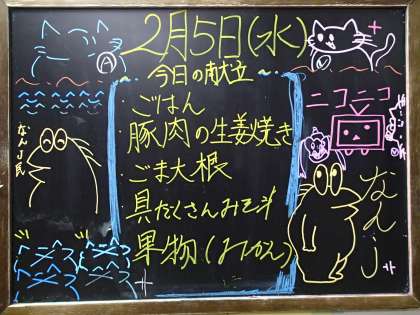 2月5日(水)
今日の献立
・ごはん
・豚肉の生姜焼き
・ごま大根
・具だくさんみそ汁
・果物(みかん)
ニコニコ
なんJ民
なんJ